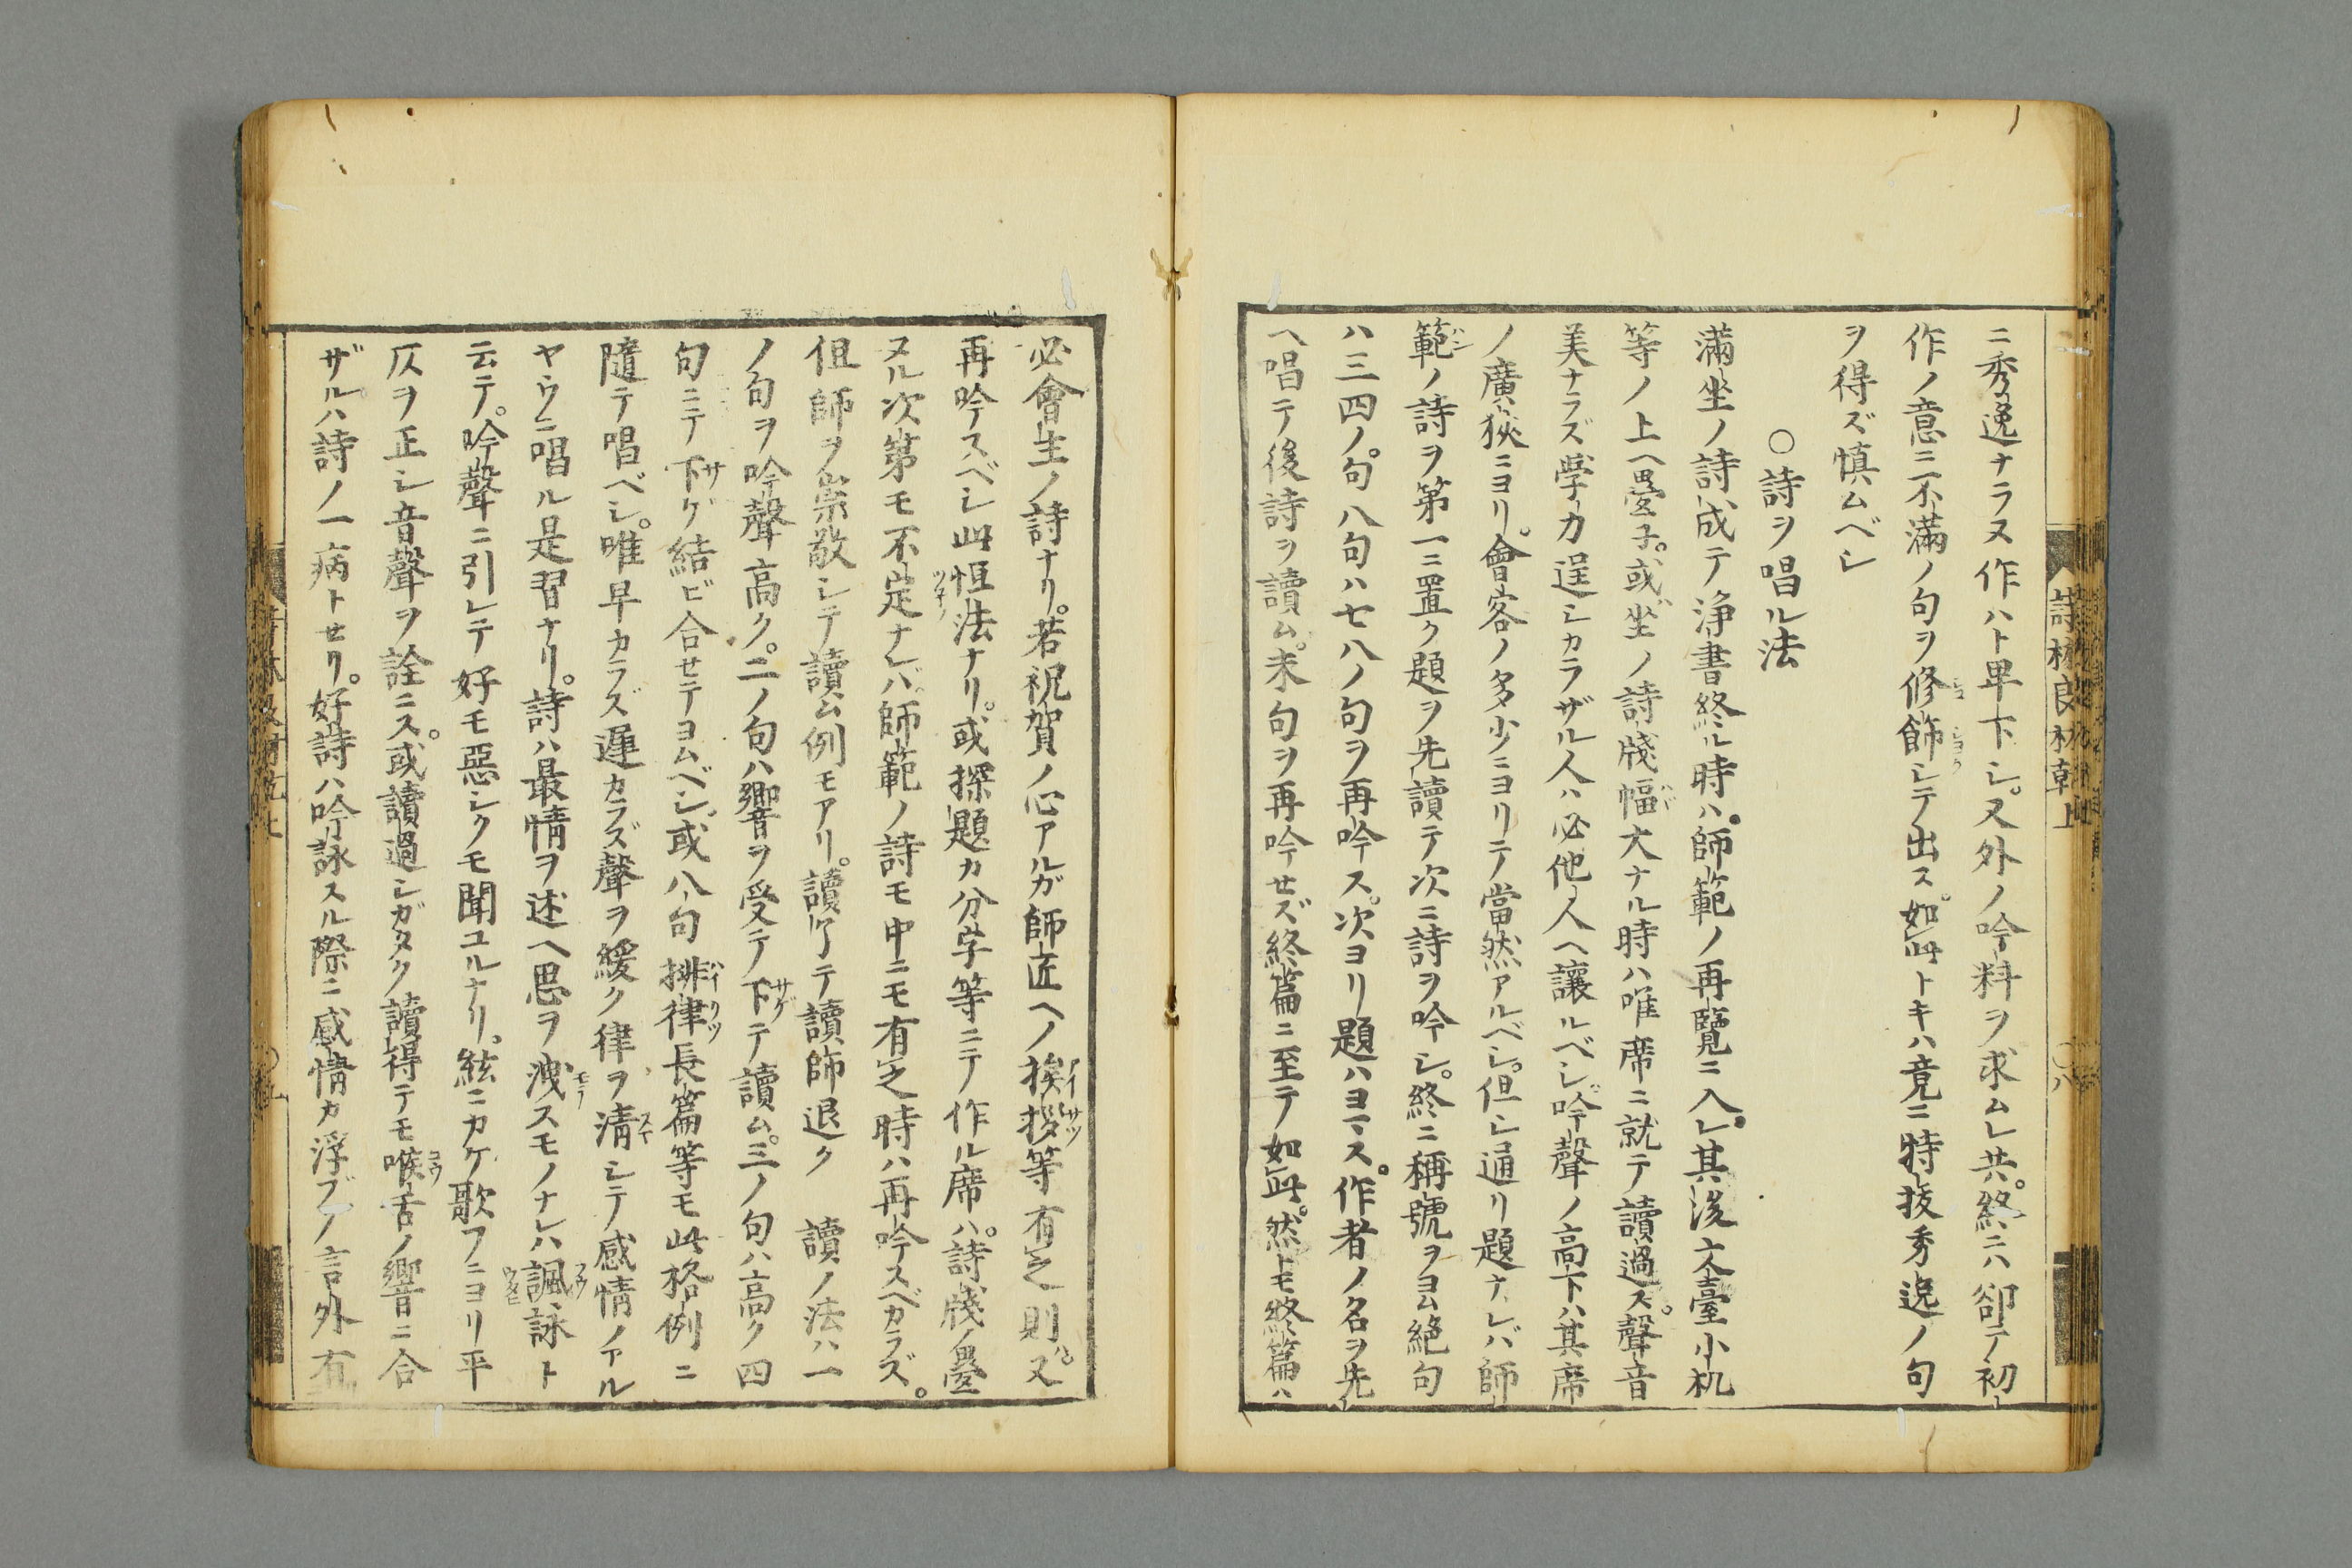 詩林良材乾上
〇八
ニ秀逸ナラヌ作ハト卑下シ。又外ノ吟料ヲ求ムレ共。終ニハ卻テ初ー
作ノ意ニ不満ノ句ヲ修飾シテ出ス。如此トキハ竟ニ特拔秀逸ノ句
ヲ得ズ慎ムベシ
〇詩ヲ唱ル法
滿坐ノ詩成テ浄書終ル時ハ。師範ノ再覽ニ入レ。其後文臺小机
等ノ上ヘ疊子。或坐ノ詩牋幅大ナル時ハ唯席ニ就テ讀過ス。聲音
美ナラズ学力逞シカラザル人ハ必他人ヘ讓ルベシ。吟聲ノ高下ハ其席
ノ廣狹ニヨリ。會客ノ多少ニヨリテ當然アルベシ。但シ通リ題ナレバ師
範ノ詩ヲ第一ニ置ク題ヲ先讀テ次ニ詩ヲ吟シ。終ニ稱號ヲヨム絶句
ハ三四ノ。句八句ハ七八ノ句ヲ再吟ス。次ヨリ題ハヨマス。作者ノ名ヲ先
ヘ唱テ後詩ヲ讀ム。末句ヲ再吟セズ終篇ニ至テ如此。然トモ終篇ハ
必會主ノ詩ナリ。若祝賀ノ心アルカ師匠ヘノ挨拶等有之則ハ又
再吟スベシ此恒法ナリ。或探題カ分字等ニテ作ル席ハ。詩牋ノ疊
ヌル次第モ不定ナレバ師範ノ詩モ中ニモ有之時ハ再吟スベカラズ。
但師ヲ崇敬シテ讀ム例モアリ。讀了テ讀師退ク　讀ノ法ハ一
ノ句ヲ吟聲高ク。二ノ句ハ響ヲ受テ下テ讀ム。三ノ句ハ高ク四
句ニテ下ゲ結ビ合セテヨムベシ。或八句排律長篇等モ此格例ニ
隨テ唱ベシ。唯早カラズ遲カラズ聲ヲ緩ク律ヲ淸シテ感情ノアル
ヤウニ唱ル是習ナリ。詩ハ最情ヲ述ヘ思ヲ洩スモノナレハ諷詠ト
云テ。吟聲ニ引レテ好モ惡シクモ聞ユルナリ。絃ニカケ歌フニヨリ平
仄ヲ正シ音聲ヲ詮ニス。或讀過シガタク讀得テモ喉舌ノ響ニ合
ザルハ詩ノ一病トセリ。好詩ハ吟詠スル際ニ感情カ浮ブノ言外有